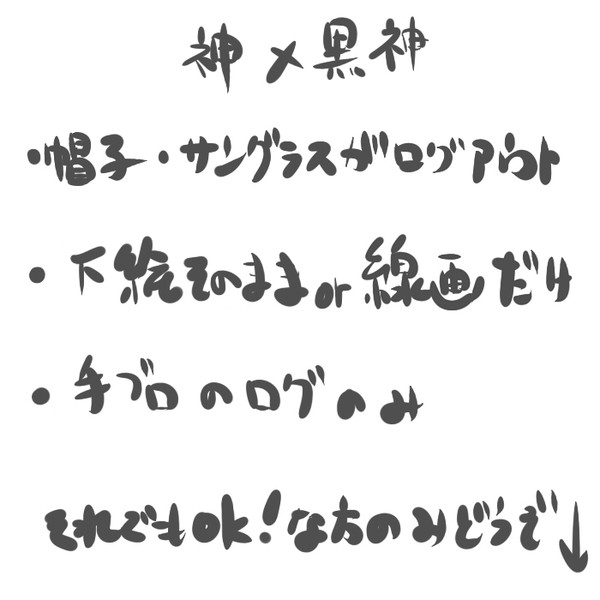 神×黒神
・帽子・サングラスがログアウト
・下絵そのままor線画だけ
・手ブロのログのみ
それでもOK!な方のみどうぞ↓